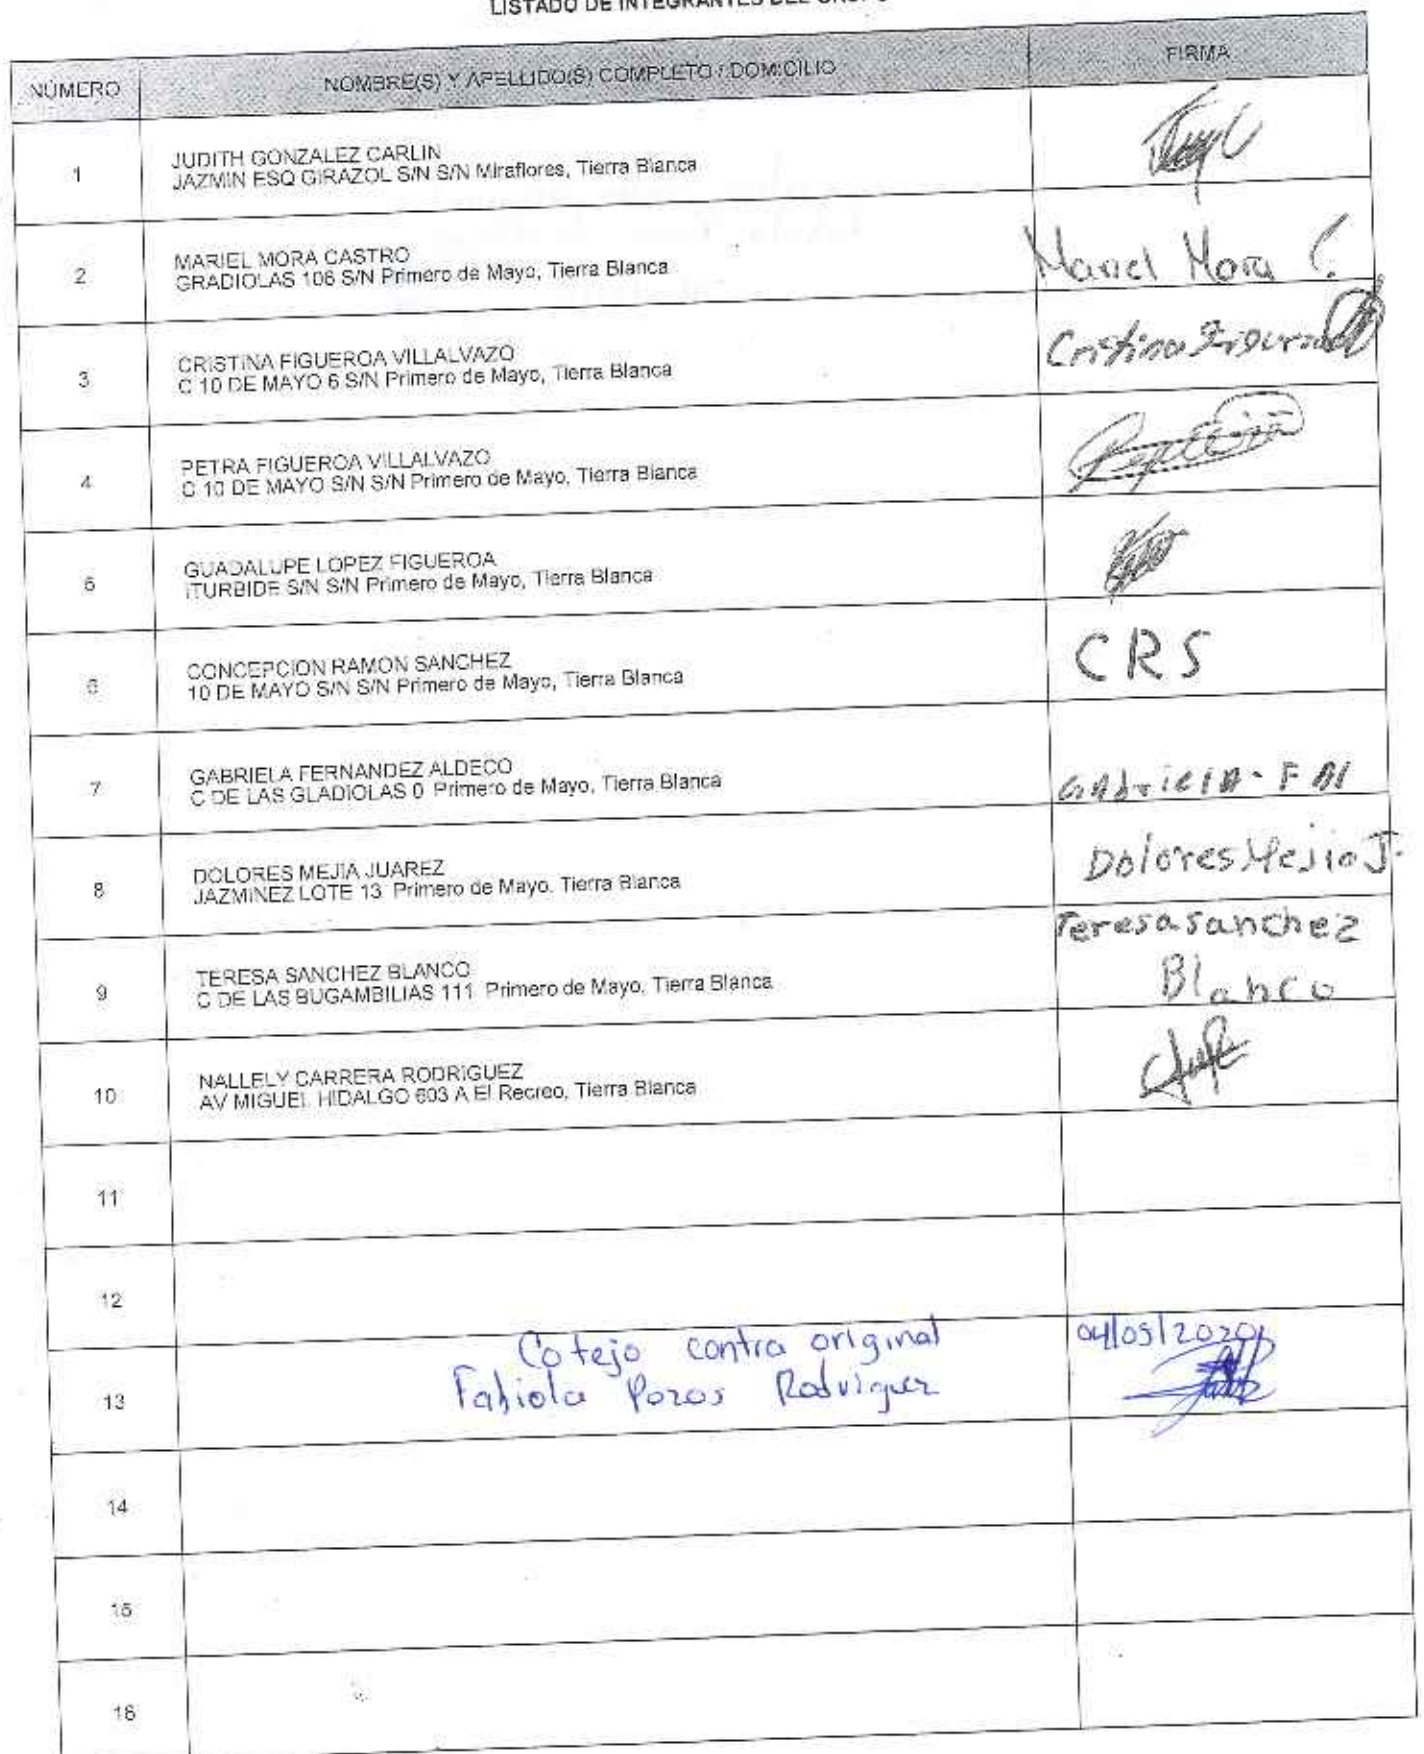 LISTADO DE INTEGRANTES DEL
NÚMERO NOMBRE(S) Y APELLIDO(S) COMPLETO / DOMICILIO FIRMA
1 JUDITH GONZALEZ CARLIN
JAZMIN ESQ GIRAZOL S/N S/N Miraflores, Tierra Blanca
2 MARIEL MORA CASTRO
GRADIOLAS 106 S/N Primero de Mayo, Tierra Blanca
Mariel Mora C.
3 CRISTINA FIGUEROA VILLALVAZO
C 10 DE MAYO 6 S/N Primero de Mayo, Tierra Blanca
Cristina
4 PETRA FIGUEROA VILLALVAZO
C 10 DE MAYO S/N S/N Primero de Mayo, Tierra Blanca
5 GUADALUPE LOPEZ FIGUEROA
ITURBIDE S/N S/N Primero de Mayo, Tierra Blanca
6 CONCEPCION RAMON SANCHEZ
10 DE MAYO S/N S/N Primero de Mayo, Tierra Blanca
CRS
7 GABRIELA FERNANDEZ ALDECO
C DE LAS GLADIOLAS 0 Primero de Mayo, Tierra Blanca
GAbrielA. F Al
8 DOLORES MEJIA JUAREZ
JAZMINEZ LOTE 13 Primero de Mayo, Tierra Blanca
Dolores Mejia J.
9 TERESA SANCHEZ BLANCO
C DE LAS BUGAMBILIAS 111 Primero de Mayo, Tierra Blanca
Teresa Sanchez
Blanco
10 NALLELY CARRERA RODRIGUEZ
AV MIGUEL HIDALGO 603 A El Recreo, Tierra Blanca
11
12
Cotejo contra original 04/05/2020
13 Fabiola Pozos Rodriguez
14
15
16